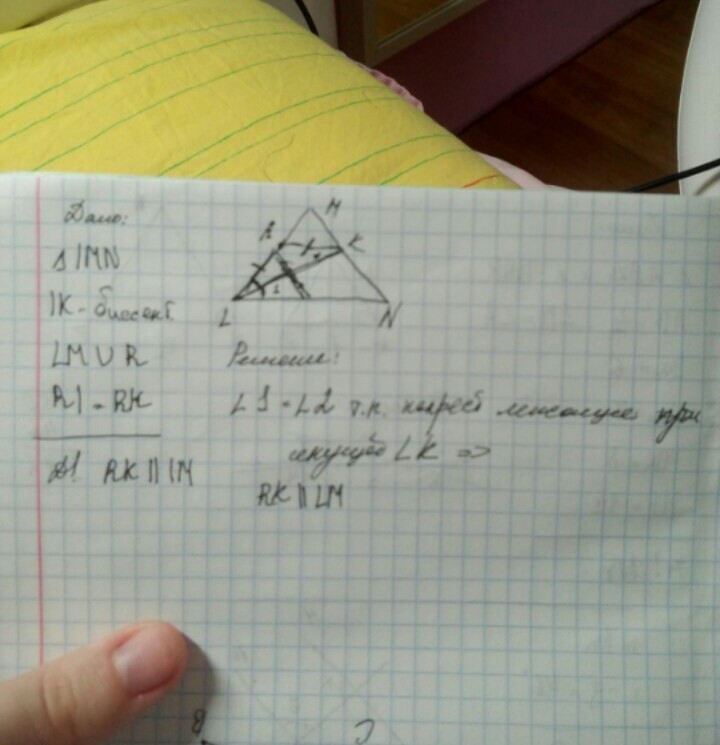 Дано:
Δ LMN
LK - биссект.
LM ∪ R
RL = RK
Д! RK || LN
M
R
K
2
1
L
N
Решение:
∠1 = ∠2 т.к. накрест лежащие при
секущей LK =>
RK || LM
В
С